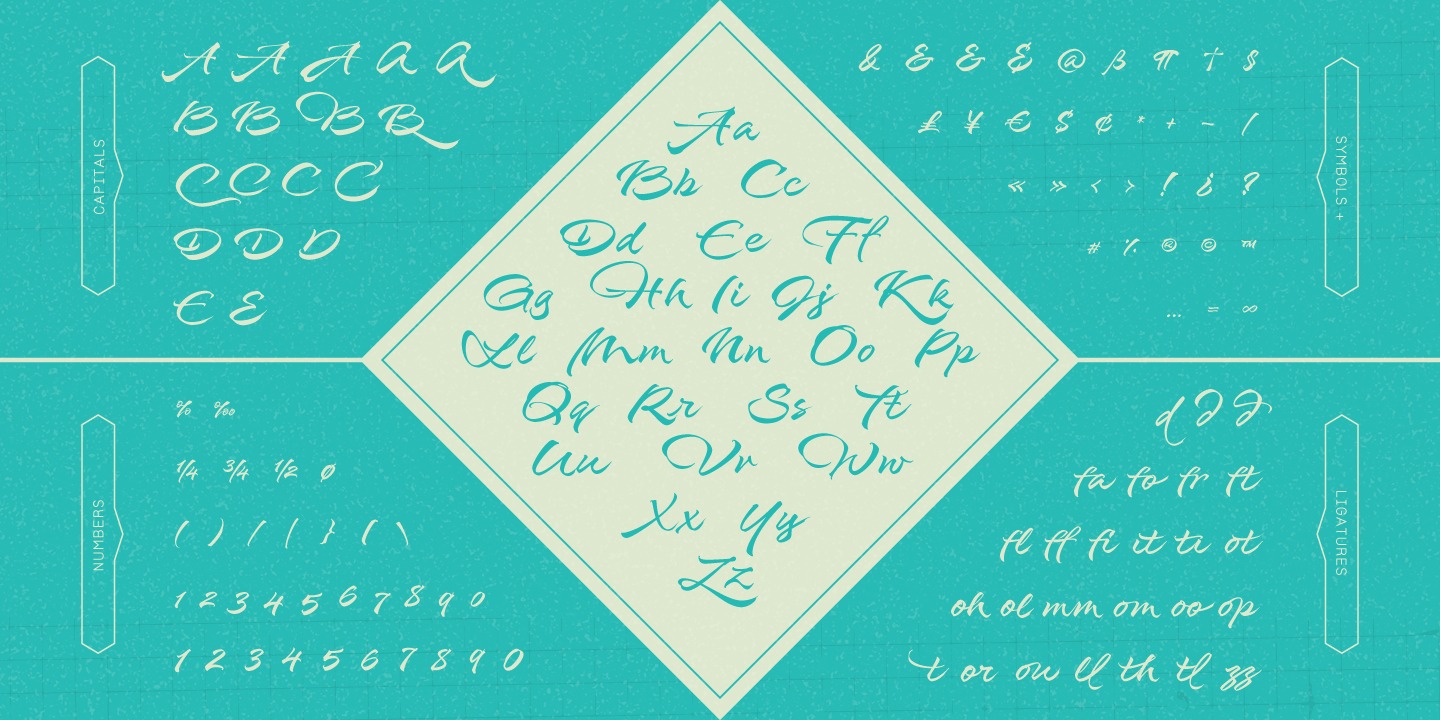 CAPITALS
A A A A A
B B B B
C C C C
D D D
E E
Aa
Bb Cc
Dd Ee Ff
Gg Hh Ii Jj Kk
Ll Mm Nn Oo Pp
Qq Rr Ss Tt
Uu Vv Ww
Xx Yy
Zz
SYMBOLS +
& & & & @ ß ¶ † $
£ ¥ € $ ¢ * + – /
« » ‹ › ! ¿ ?
# ⁒ ® © ™
… = ∞
NUMBERS
% ‰
1/4 3/4 1/2 ø
( ) / | } { \
1 2 3 4 5 6 7 8 9 0
1 2 3 4 5 6 7 8 9 0
LIGATURES
d ∂ ∂
fa fo fr ft
fl ff fi it ti ot
oh ol mm om oo op
t or ow ll th tl zz